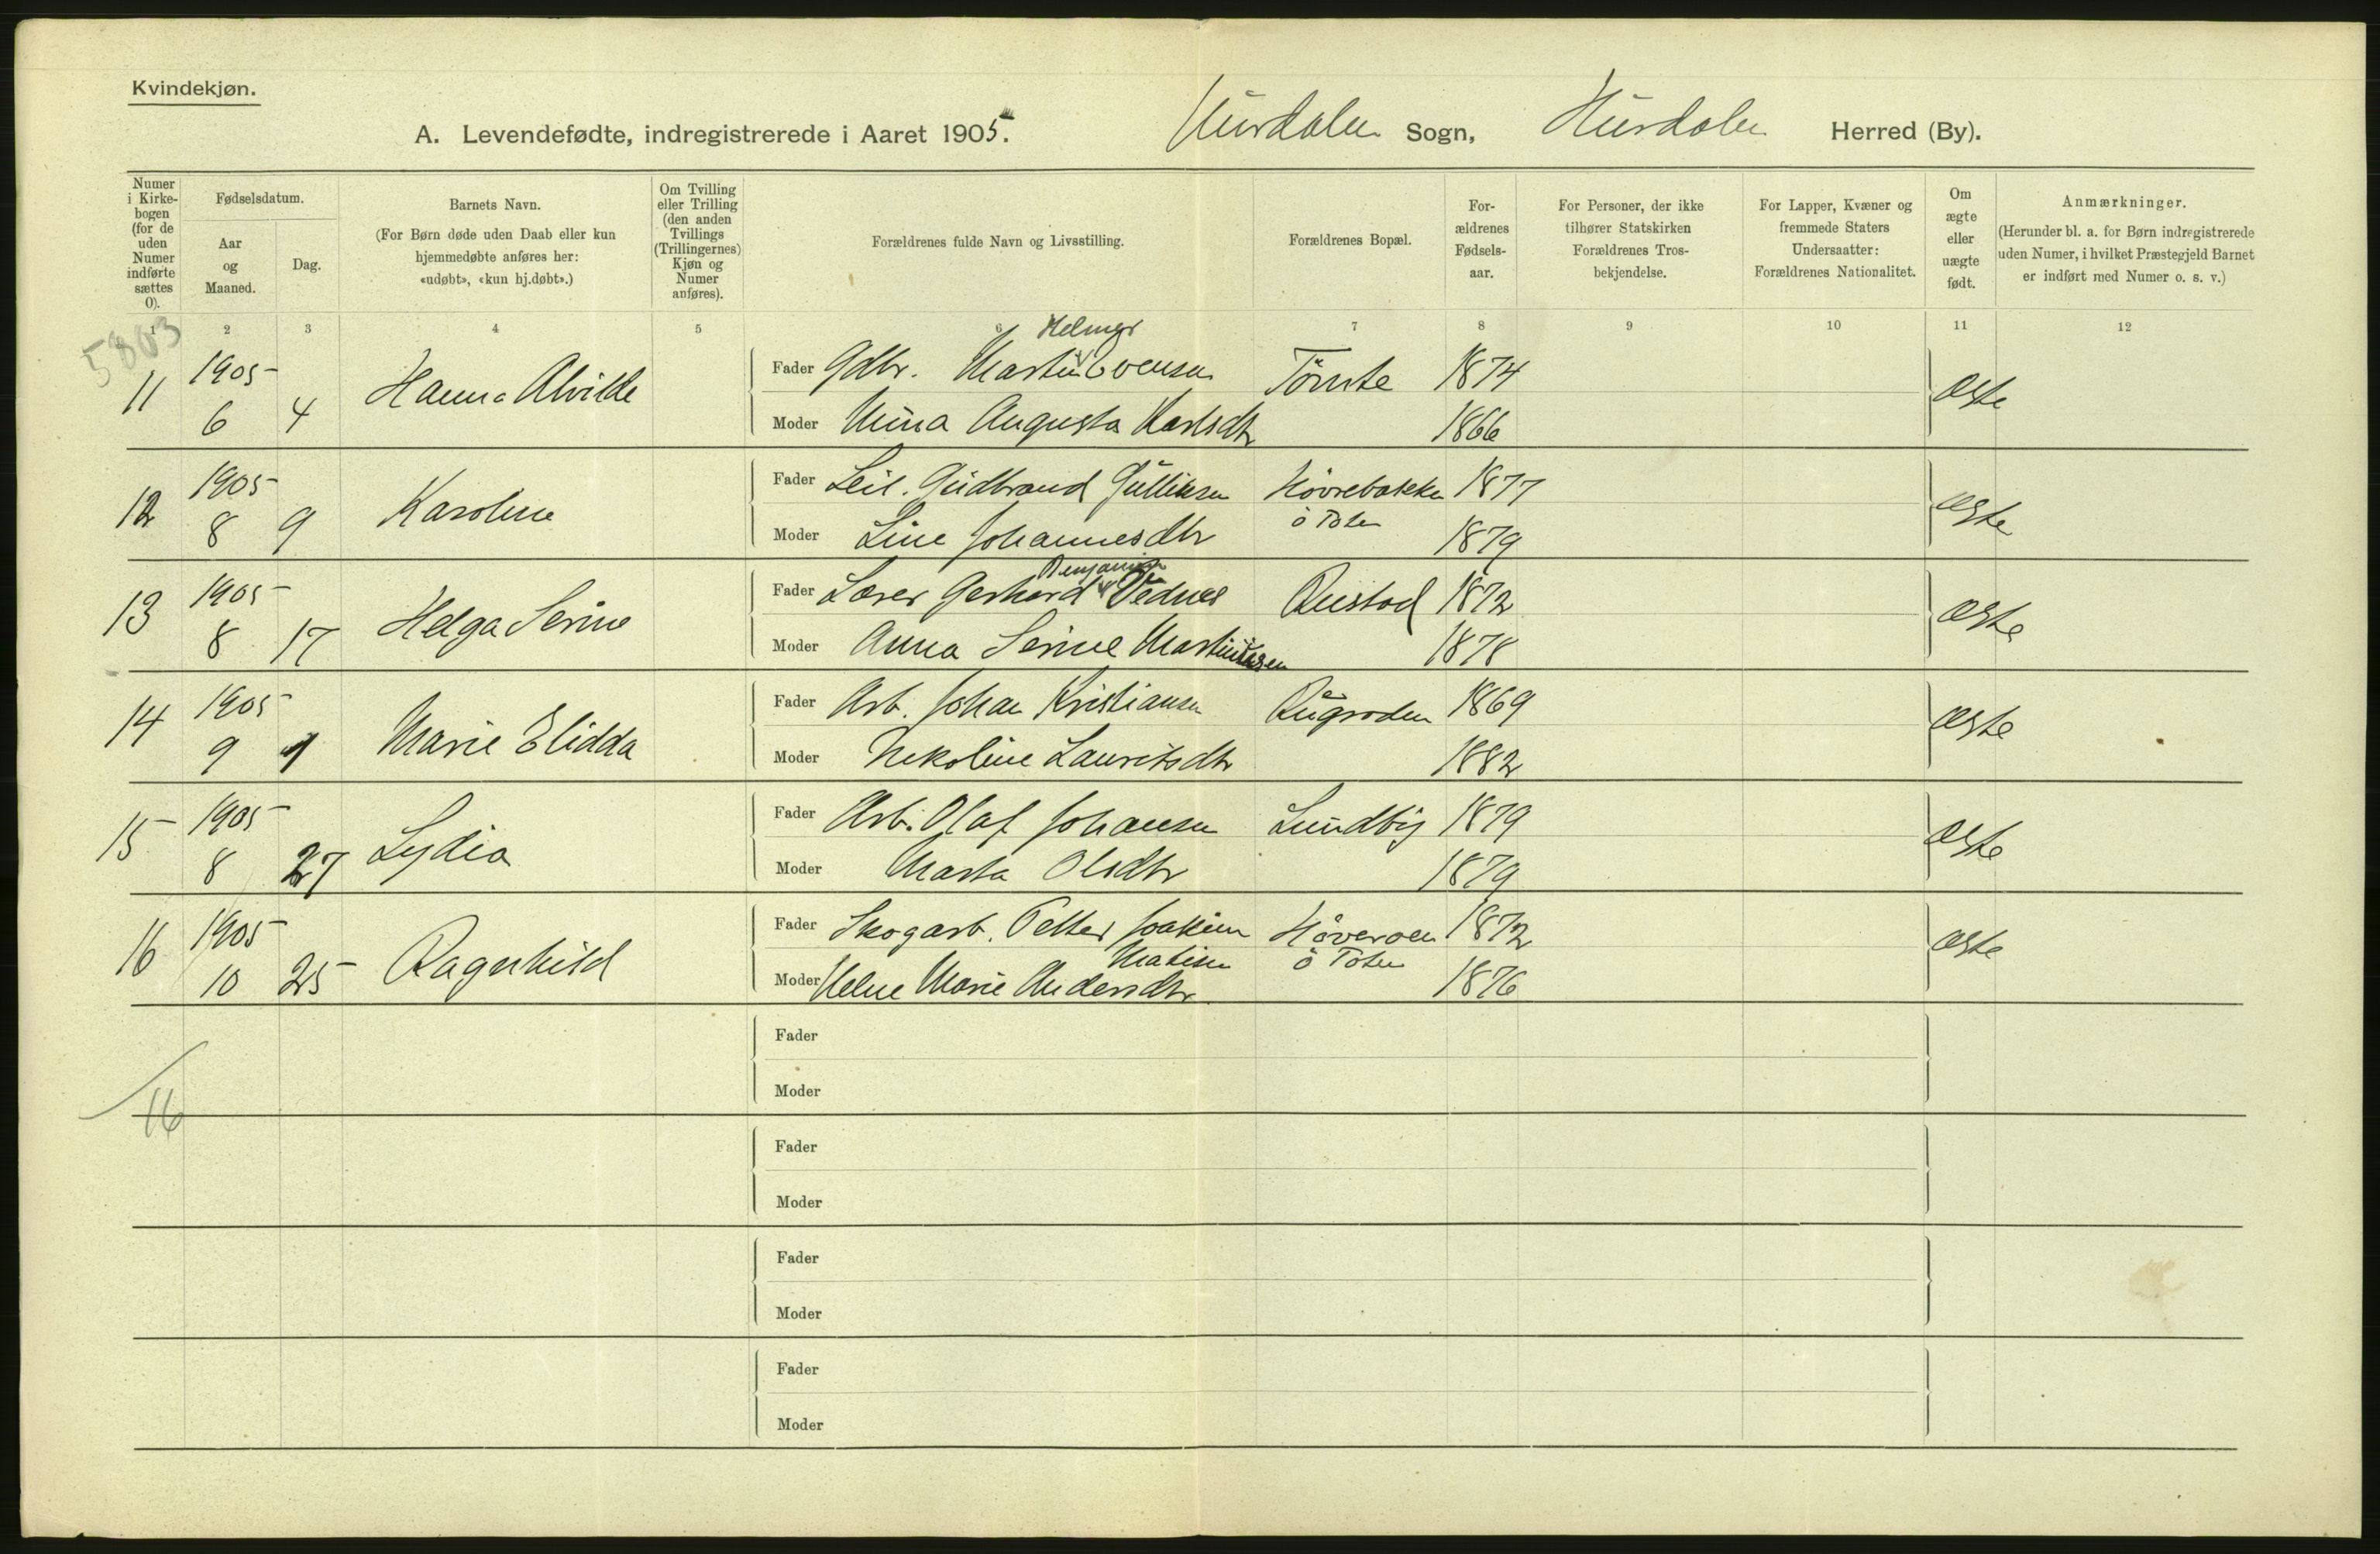 Kvindekjøn.
A. Levendefødte, indregistrerede i Aaret 1905. Hurdalen Sogn, Hurdalen Herred (By).
Numer i Kirkebogen (for de uden Numer indførte sættes 0).
Fødselsdatum.
Aar og Maaned.
Dag.
Barnets Navn.
(For Børn døde uden Daab eller kun hjemmedøbte anføres her: «udøbt», «kun hj.døbt».)
Om Tvilling eller Trilling (den anden Tvillings (Trillingernes) Kjøn og Numer anføres).
Forældrenes fulde Navn og Livsstilling.
Forældrenes Bopæl.
Forældrenes Fødselsaar.
For Personer, der ikke tilhører Statskirken Forældrenes Trosbekjendelse.
For Lapper, Kvæner og fremmede Staters Undersaatter: Forældrenes Nationalitet.
Om ægte eller uægte født.
Anmærkninger.
(Herunder bl. a. for Børn indregistrerede uden Numer, i hvilket Præstegjeld Barnet er indført med Numer o. s. v.)
1 2 3 4 5 6 7 8 9 10 11 12
5803
Helmer
11 1905 6 4 Hanna Alvilde Fader Gdbr. Martin Evensen Tömte 1874 ægte
Moder Mina Augusta Karlsdtr 1866
12 1905 8 9 Karoline Fader Leil. Gudbrand Gulliksen Hövrebakken 1877 ægte
ö Toten
Moder Line Johannesdtr 1879
Benjamin
13 1905 8 17 Helga Serine Fader Lærer Gerhard Vednes Rustad 1872 ægte
Moder Anna Serine Martinusen 1878
14 1905 9 1 Marie Elidda Fader Arb. Johan Kristiansen Rugroden 1869 ægte
Moder Nekoline Lauritsdtr 1882
15 1905 8 27 Lydia Fader Arb. Olaf Johansen Lundby 1879 ægte
Moder Marta Olsdtr 1879
16 1905 10 25 Ragnhild Fader Skogarb. Petter Joakim Höveroen 1872 ægte
Matisen ö Toten
Moder Helene Marie Andersdtr 1876
Fader
Moder
16
Fader
Moder
Fader
Moder
Fader
Moder